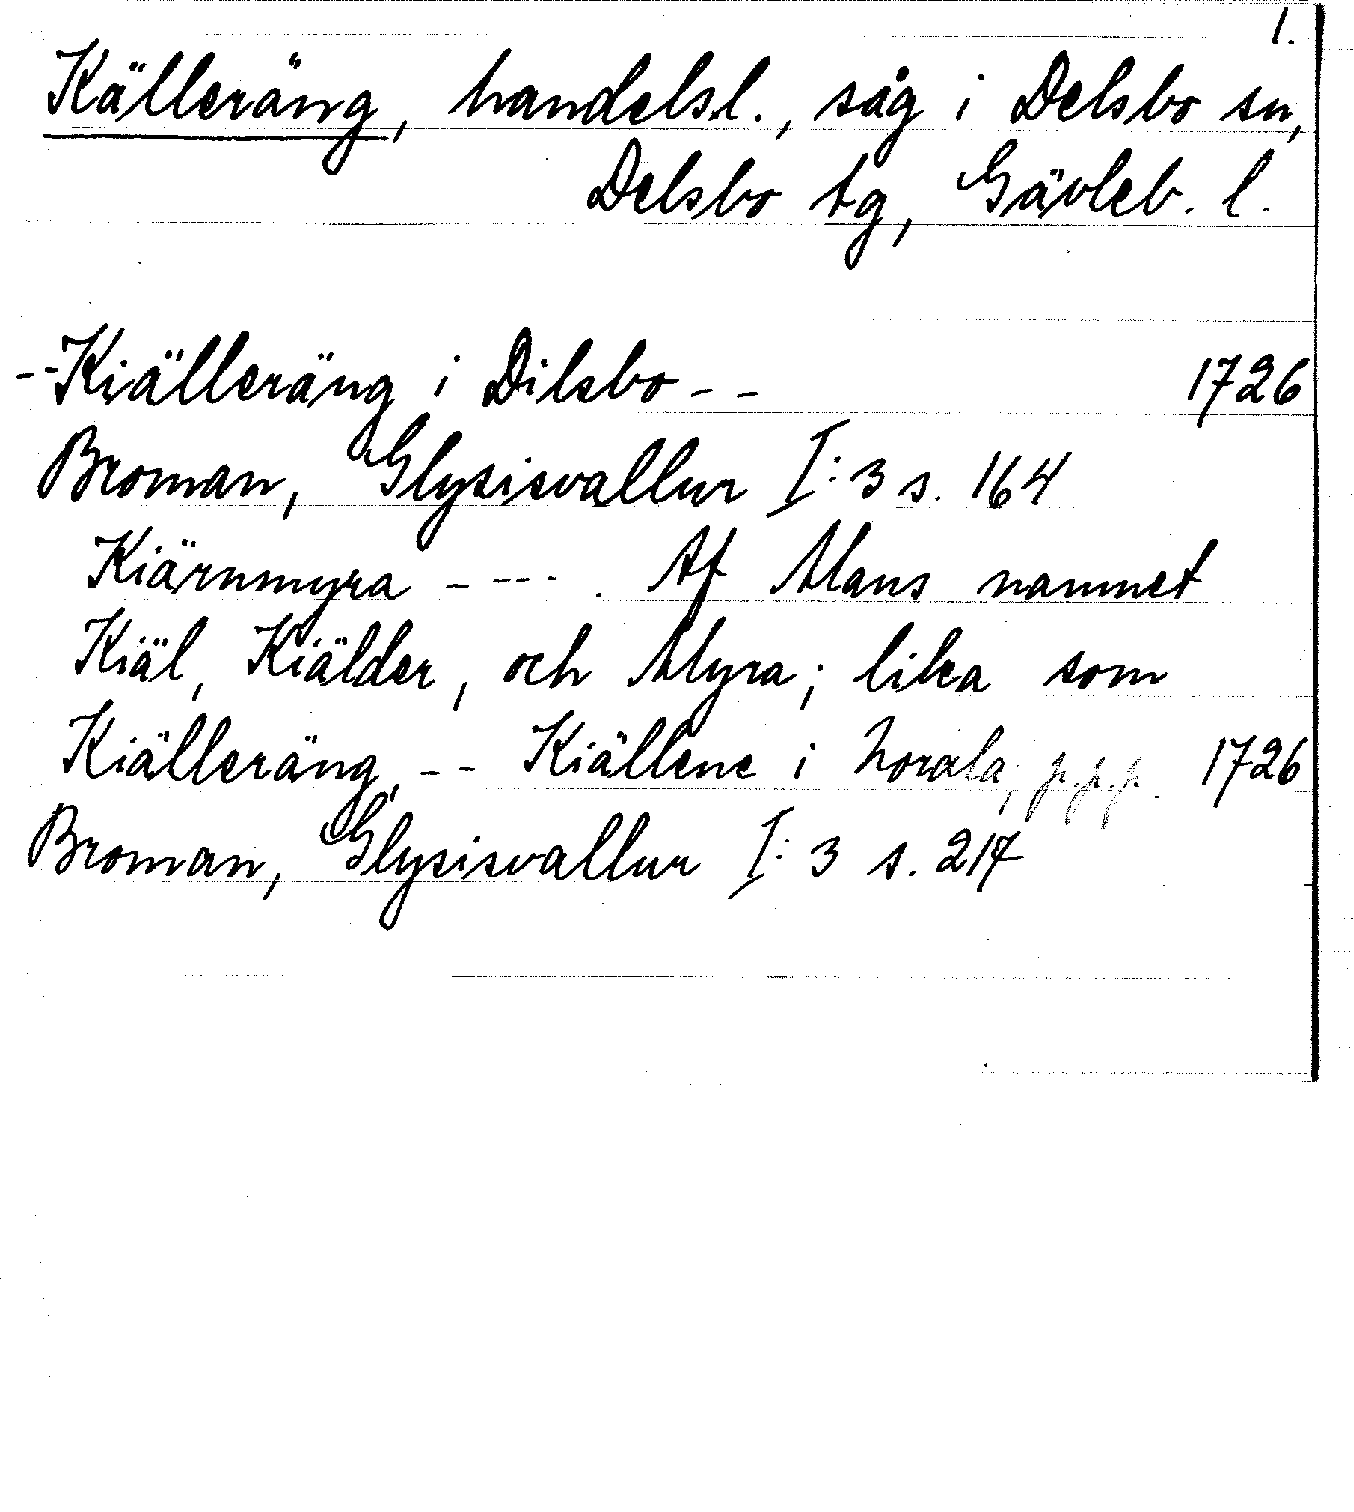 1.
Källeräng, handelsl., såg i Delsbo sn,
Delsbo tg, Gävleb. l.
--Kiälleräng i Dilsbo -- 1726
Broman, Glysisvallur I:3 s. 164
Kiärnmyra ---- . Af Mans namnet
Kiäl, Kiälder, och Myra; lika som
Kiälleräng, -- Kiällene i Norala, p.p.p. 1726
Broman, Glysisvallur I:3 s. 217